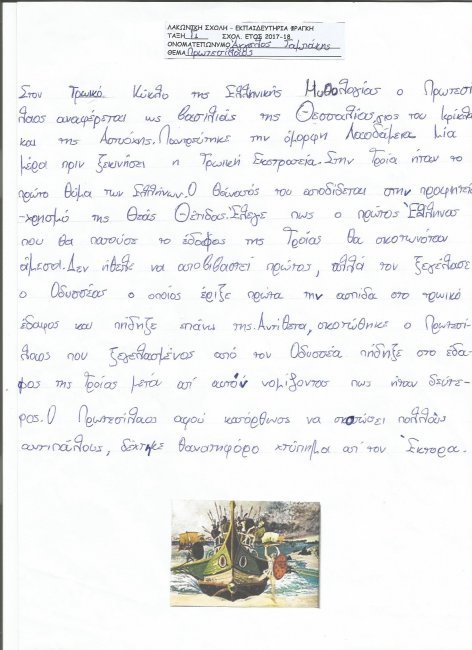 ΛΑΚΩΝΙΚΗ ΣΧΟΛΗ - ΕΚΠΑΙΔΕΥΤΗΡΙΑ ΦΡΑΓΚΗ
ΤΑΞΗ ΣΧΟΛ. ΕΤΟΣ 2017-18
ΟΝΟΜΑΤΕΠΩΝΥΜΟ Άγγελος Ταμπάκης
ΘΕΜΑ Πρωτεσίλαος
Στον Τρωικό Κύκλο της Ελληνικής Μυθολογίας ο Πρωτεσί
λαος αναφέρεται ως βασιλιάς της Θεσσαλίας, γιος του Ιφίκλου
και της Αστυόχης. Παντρεύτηκε την όμορφη Λαοδάμεια μία
μέρα πριν ξεκινήσει η Τρωική Εκστρατεία. Στην Τροία ήταν το
πρώτο θύμα των Ελλήνων. Ο θάνατός του αποδίδεται στην προφητεία
-χρησμό της Θεάς Θέτιδας. Έλεγε πως ο πρώτος Έλληνας
που θα πατούσε το έδαφος της Τροίας θα σκοτωνόταν
άμεσα. Δεν ήθελε να αποβιβαστεί πρώτος, αλλά τον ξεγέλασε
ο Οδυσσέας ο οποίος έριξε πρώτα την ασπίδα στο τρωικό
έδαφος και πήδηξε επάνω της. Αντίθετα, σκοτώθηκε ο Πρωτεσί-
λαος που ξεγελασμένος από τον Οδυσσέα πήδηξε στο έδα-
φος της Τροίας μετά απ' αυτόν νομίζοντας πως ήταν δεύτε-
ρος. Ο Πρωτεσίλαος αφού κατόρθωσε να σκοτώσει πολλούς
αντιπάλους, δέχτηκε θανατηφόρο κτύπημα απ' τον Έκτορα.